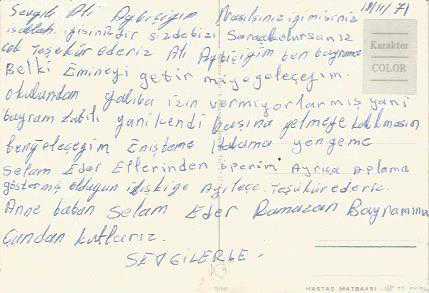 Sevgili Ali Aybiciğim Nasılsınız iyimisiniz 18/11/71
işallah iyisinizdir sizdebizi Soracakolursanız
çok Teşekür ederiz Ali Aybiciğim ben bayrama
Belki Emineyi getir miyegeleceğim.
Okuldan galiba izin vermiyorlarmış yani
bayram tatili yani kendi başına gelmeye kalkmasın
ben geleceğim Enişteme Halama yengeme
Selam Eder Ellerinden öperim Ayrıca Ablama
göstermiş olduğun ilişkiye Ailece Teşükürederiz.
Anne baban Selam Eder Ramazan Bayramını
Candan kutlarız.
SEVGİLERLE.
Karakter
COLOR
HASTAŞ MATBAASI